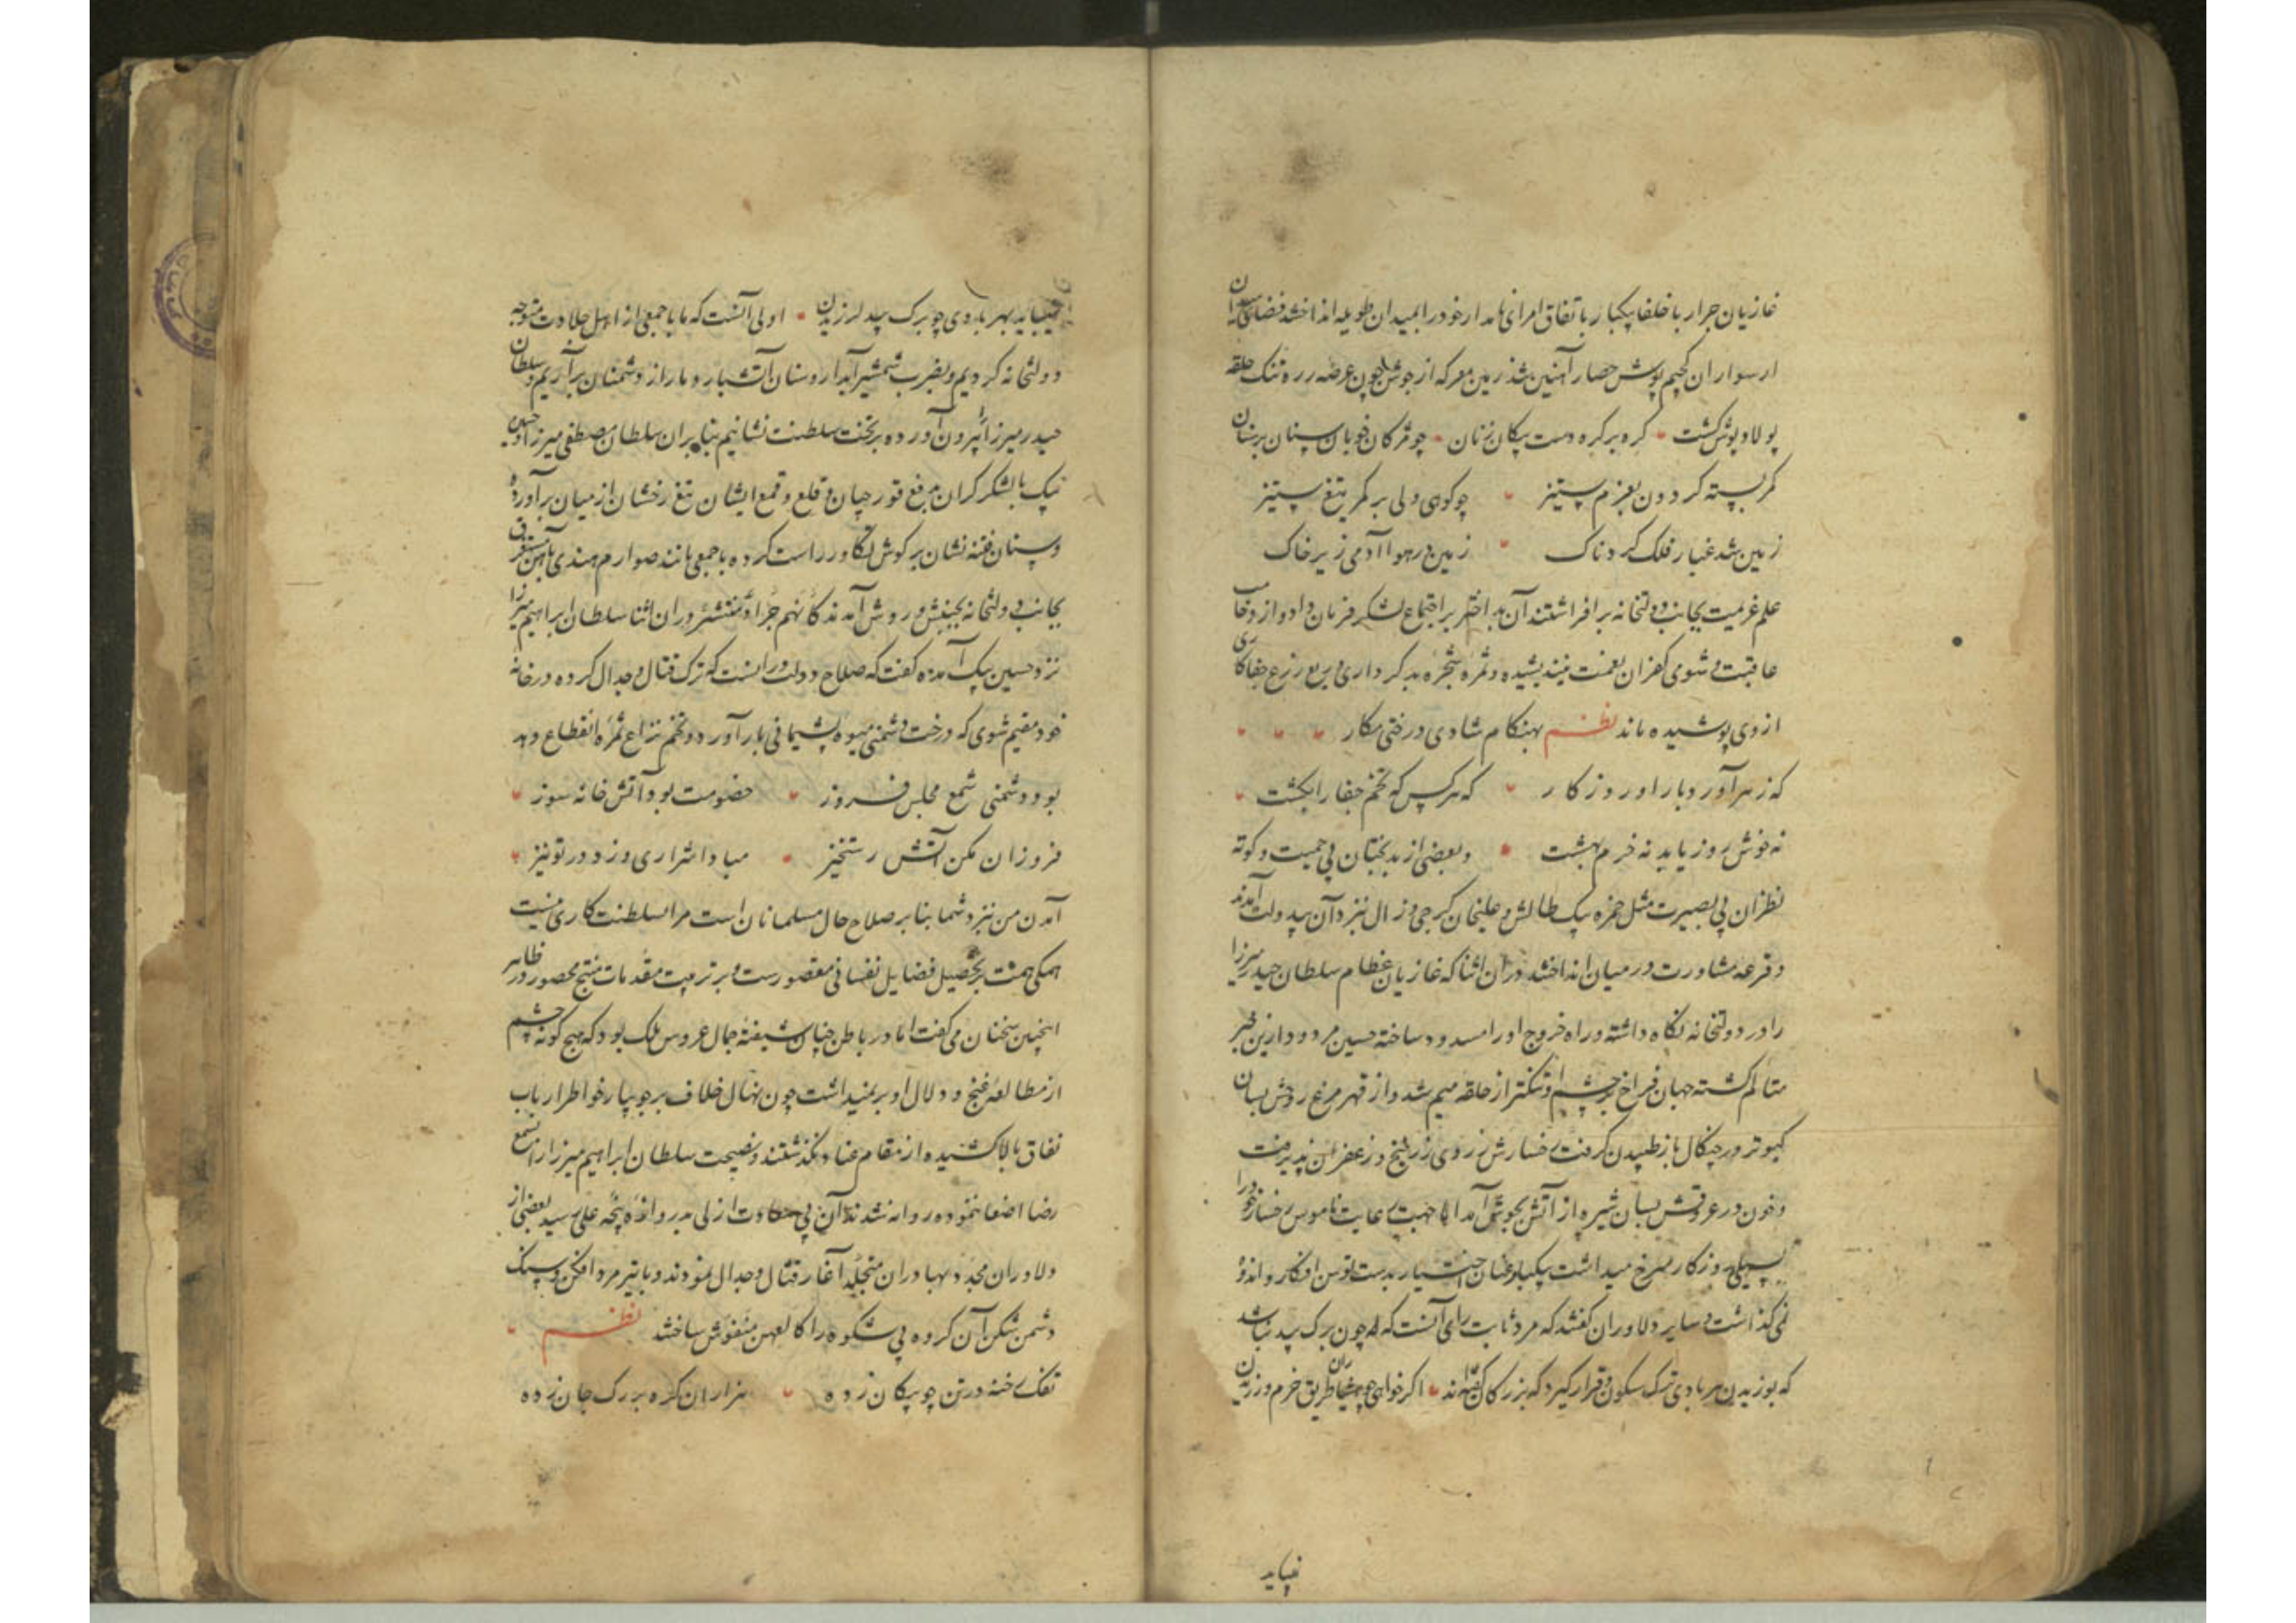 غازیان جرار با خلفا یکبار باتفاق امرای نامدار خود را بمیدان طویله انداختند فضای میدان
از سواران کجیم پوش حصار آهنین شد زمین معرکه از جوشن چون عرضه زره تنک حلقه
پولاد پوش کشت کره بر کره دست پیکان زنان چو مژکان خوبان سنان بر سنان
کمر بسته کردون بعزم ستیز چو کوهی ولی بر کمر تیغ ستیز
زمین شد غبار فلک کرد ناک زمین در هوا آدمی زیر خاک
علم عزیمت بجانب دولتخانه برافراشتند آن بد اختر بر اجتماع لشکر فرمان داد و از وخامت
عاقبت و شومی کفران نعمت نیندیشیده و ثمره شجره بد کرداری و ریع زرع جفاکاری
از وی پوشیده ماند نظم بهنکام شادی درختی مکار
که زهر آورد بار او روزکار که هر کس که تخم جفا را بکشت
نه خوش روز یابد نه خرم بهشت و بعضی از بدبختان بی حمیت و کوته
نظران بی بصیرت مثل حمزه بیک طالش و علیخان کرجی و زال نزد آن بیدولت آمدند
و قرعه مشاورت در میان انداختند در آن اثنا که غازیان عظام سلطان حیدر میرزا
را در دولتخانه نکاه داشته و راه خروج او را مسدود ساخته حسین مردود ازین خبر
متالم کشته جهان فراخ بر چشم او تنکتر از حلقه میم شد و از قهر مرغ روحش بسان
کبوتر در چنکال باز طپیدن کرفت رخسارش زردی زرنیخ و زعفران پذیرفت
و خون در عروقش بسان شیره از آتش بجوش آمد اما جهت رعایت ناموس رخسار خود را
بسیلی روزکار سرخ میداشت یکبار عنان اختیار بدست توسن افکار و اندوه
نمی کذاشت و سایر دلاوران کفتند که مرد ثابت رای آنست که چون برک بید نباشد
که بوزیدن هر بادی ترک سکون و قرار کیرد که بزرکان کفته اند اکر خواهی طریق حزم ورزیدن
نیباید
نیباید بهر بادی چو برک بید لرزیدن اولی آنست که ما با جمعی از اهل جلادت متوجه
دولتخانه کردیم و بضرب شمشیر آبدار و سنان آتشبار دمار از دشمنان برآریم و سلطان
حیدر میرزا را بیرون آورده بر تخت سلطنت نشانیم بنابران سلطان مصطفی میرزا و حسین
بیک با لشکر کران برفع قورچیان و قلع و قمع ایشان تیغ رخشان از میان برآورده
و سنان فتنه نشان بر کوش تکاور راست کرده با جمعی مانند صوارم هندی بآهن مستغرق
بجانب دولتخانه بجنبش و روش آمدند کانهم جراد منتشر در آن اثنا سلطان ابراهیم میرزا
نزد حسین بیک آمده کفت که صلاح دولت در اینست که ترک قتال و جدال کرده در خانه
خود مقیم شوی که درخت دشمنی میوه پشیمانی بار آورد و تخم نزاع ثمره انقطاع دهد
بود دشمنی شمع مجلس فروز خصومت بود آتش خانه سوز
فروزان مکن آتش رستخیز مبادا شراری وزد در تو نیز
آمدن من نزد شما بنابر صلاح حال مسلمانان است مرا بسلطنت کاری نیست
همکی همت بر تحصیل فضایل نفسانی مقصورست و بر ترتیب مقدمات منتج محصور در ظاهر
اینچنین سخنان می کفت اما در باطن چنان شیفته جمال عروس ملک بود که هیچ کونه چشم
از مطالعه غنج و دلال او بر نمیداشت چون نهال خلاف بر جویبار خواطر ارباب
نفاق بالا کشیده از مقام عناد نکذشتند و نصیحت سلطان ابراهیم میرزا را بسمع
رضا اصغا ننموده روانه شدند آن بی سعادت ازلی بدروازه پنجه علی رسید بعضی از
دلاوران مجد و بهادران متجلد آغاز قتال و جدال نمودند و با تیر مرد افکن و سنک
دشمن شکن آن کروه بی شکوه را کالعهن منفوش ساختند نظم
تفک رخنه در تن چو پیکان زده هزاران کره بر رک جان زده